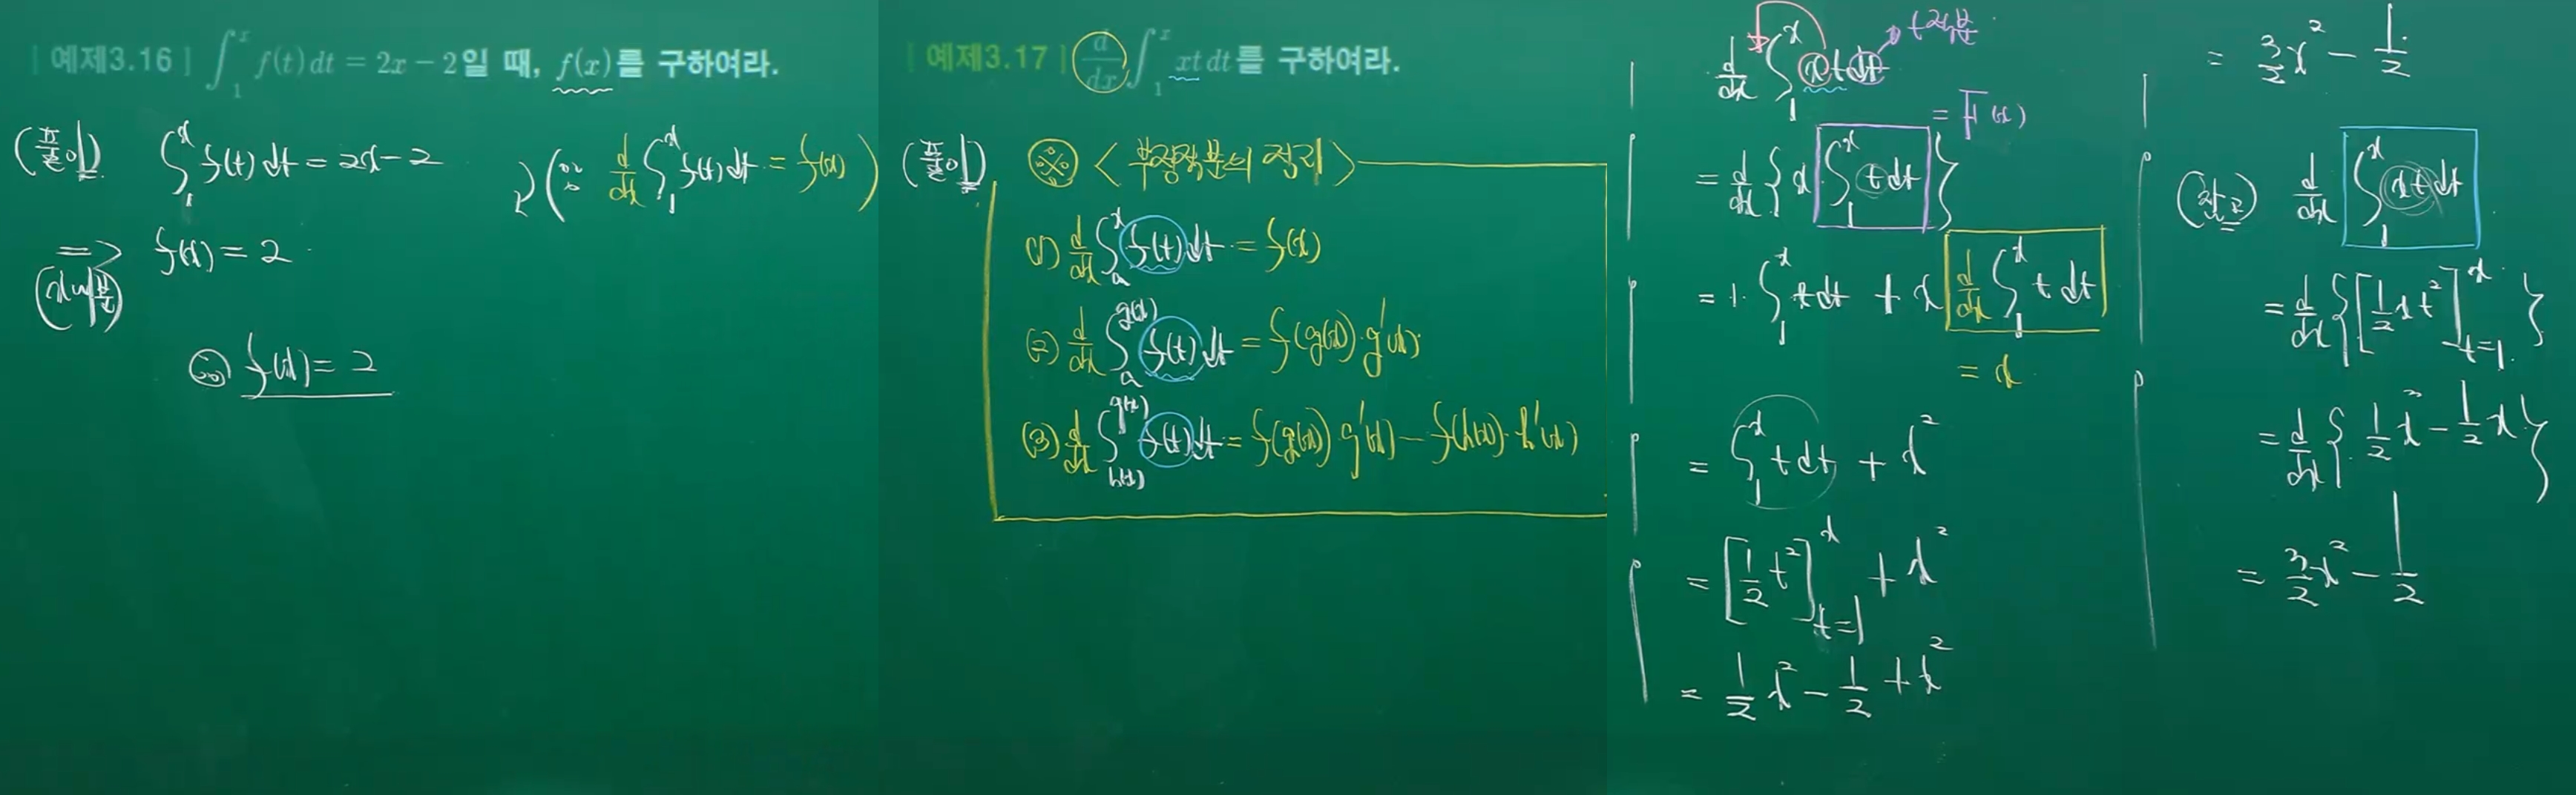 | 예제3.16 | ∫₁ˣ f(t) dt = 2x − 2일 때, f(x)를 구하여라.
(풀이) ∫₁ˣ f(t) dt = 2x − 2
(∵ d/dx ∫₁ˣ f(t) dt = f(x))
⇒ f(x) = 2
(x미분)
∴ f(x) = 2
| 예제3.17 | d/dx ∫₁ˣ xt dt를 구하여라.
(풀이) ※ < 부정적분의 정리 >
(1) d/dx ∫ₐˣ f(t) dt = f(x)
(2) d/dx ∫ₐ^g(x) f(t) dt = f(g(x))·g′(x)
(3) d/dx ∫_h(x)^g(x) f(t) dt = f(g(x))·g′(x) − f(h(x))·h′(x)
d/dx ∫₁ˣ xt dt → t적분
= F(x)
= d/dx { x ∫₁ˣ t dt }
= 1·∫₁ˣ t dt + x d/dx ∫₁ˣ t dt
= x
= ∫₁ˣ t dt + x²
= [1/2 t²]_t=1^x + x²
= 1/2 x² − 1/2 + x²
= 3/2 x² − 1/2
d/dx ∫₁ˣ xt dt
= d/dx { [1/2 xt²]_t=1^x }
= d/dx { 1/2 x³ − 1/2 x }
= 3/2 x² − 1/2